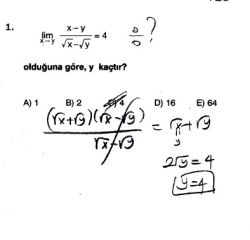 1.
lim x→y (x-y)/(√x-√y) = 4 0/0 ?
olduğuna göre, y kaçtır?
A) 1 B) 2 C) 4 D) 16 E) 64
(√x+√y)(√x-√y)/(√x-√y) = √x+√y
y
2√y = 4
y=4